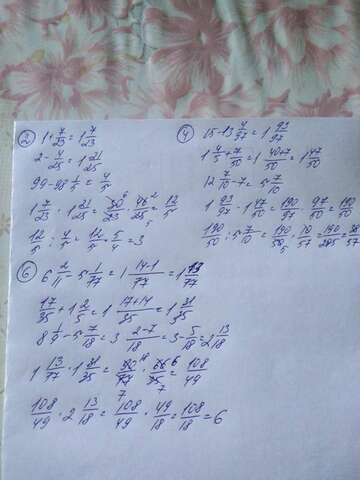 ② 1+7/23=1 7/23
2-4/25=1 21/25
99-98 1/5=4/5
1 7/23 · 1 21/25=30/23 · 46/25=12/5
12/5 : 4/5=12/5 · 5/4=3
④ 15-13 4/97=1 93/97
1 4/5+7/50=1 40+7/50=1 47/50
12 7/10-7=5 7/10
1 93/97 · 1 47/50=190/97 · 97/50=190/50
190/50 : 5 7/10=190/50 · 10/57=190/285=38/57
⑥ 6 2/11-5 1/77=1 14-1/77=1 13/77
17/35+1 2/5=1 17+14/35=1 31/35
8 1/9-5 7/18=3 2-7/18=3-5/18=2 13/18
1 13/77 · 1 31/35=90/77 · 66/35=108/49
108/49 · 2 13/18=108/49 · 49/18=108/18=6